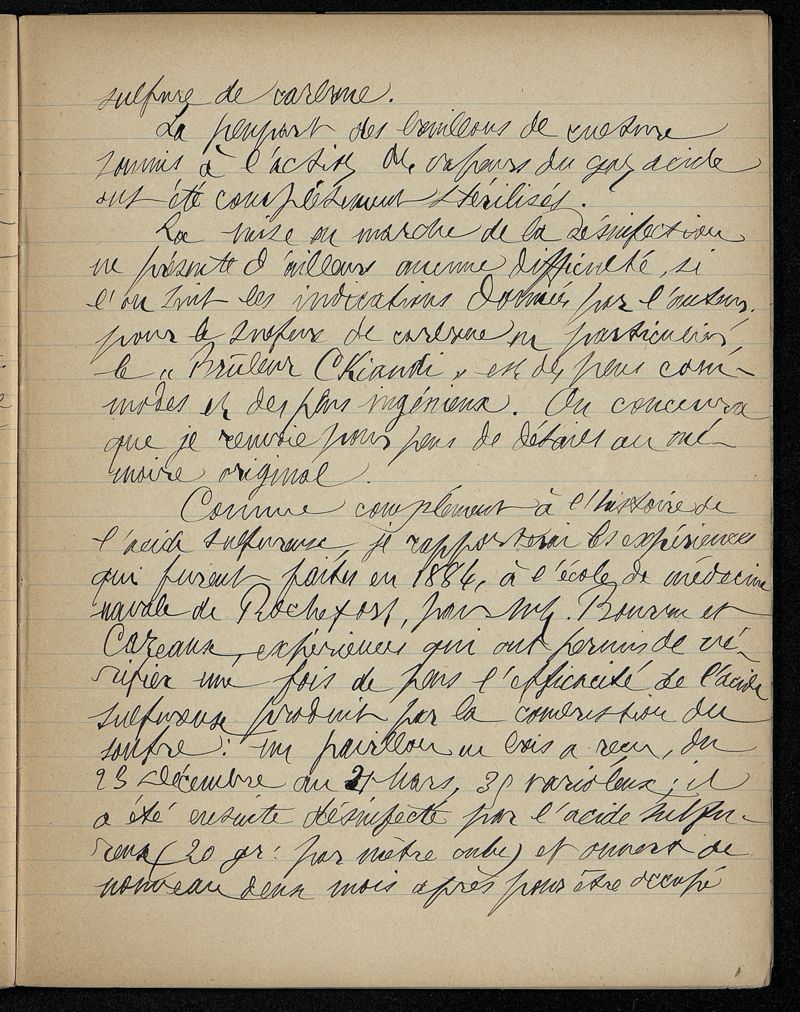 sulfure de carbone.
La plupart des bouillons de culture
soumis à l'action des vapeurs du gaz acide
ont été complètement stérilisés.
La mise en marche de la désinfection
ne présente d'ailleurs aucune difficulté, si
l'on suit les indications données par l'auteur.
pour le sulfure de carbone en particulier,
le „ Brûleur CKiandi „ est des plus com-
modes et des plus ingénieux. On concevra
que je renvoie pour plus de détails au mé-
moire original.
Comme complément à l'histoire de
l'acide sulfureux, je rapporterai les expériences
qui furent faites en 1884, à l'école de médecine
navale de Rochefort, par MM. Bourru et
Cazeaux, expériences qui ont permis de vé-
rifier une fois de plus l'efficacité de l'acide
sulfureux produit par la combustion du
soufre: un pavillon en bois a reçu, du
23 décembre au 21 Mars, 35 varioleux; il
a été ensuite désinfecté par l'acide sulfu-
reux (20 gr: par mètre cube) et ouvert de
nouveau deux mois après pour être occupé